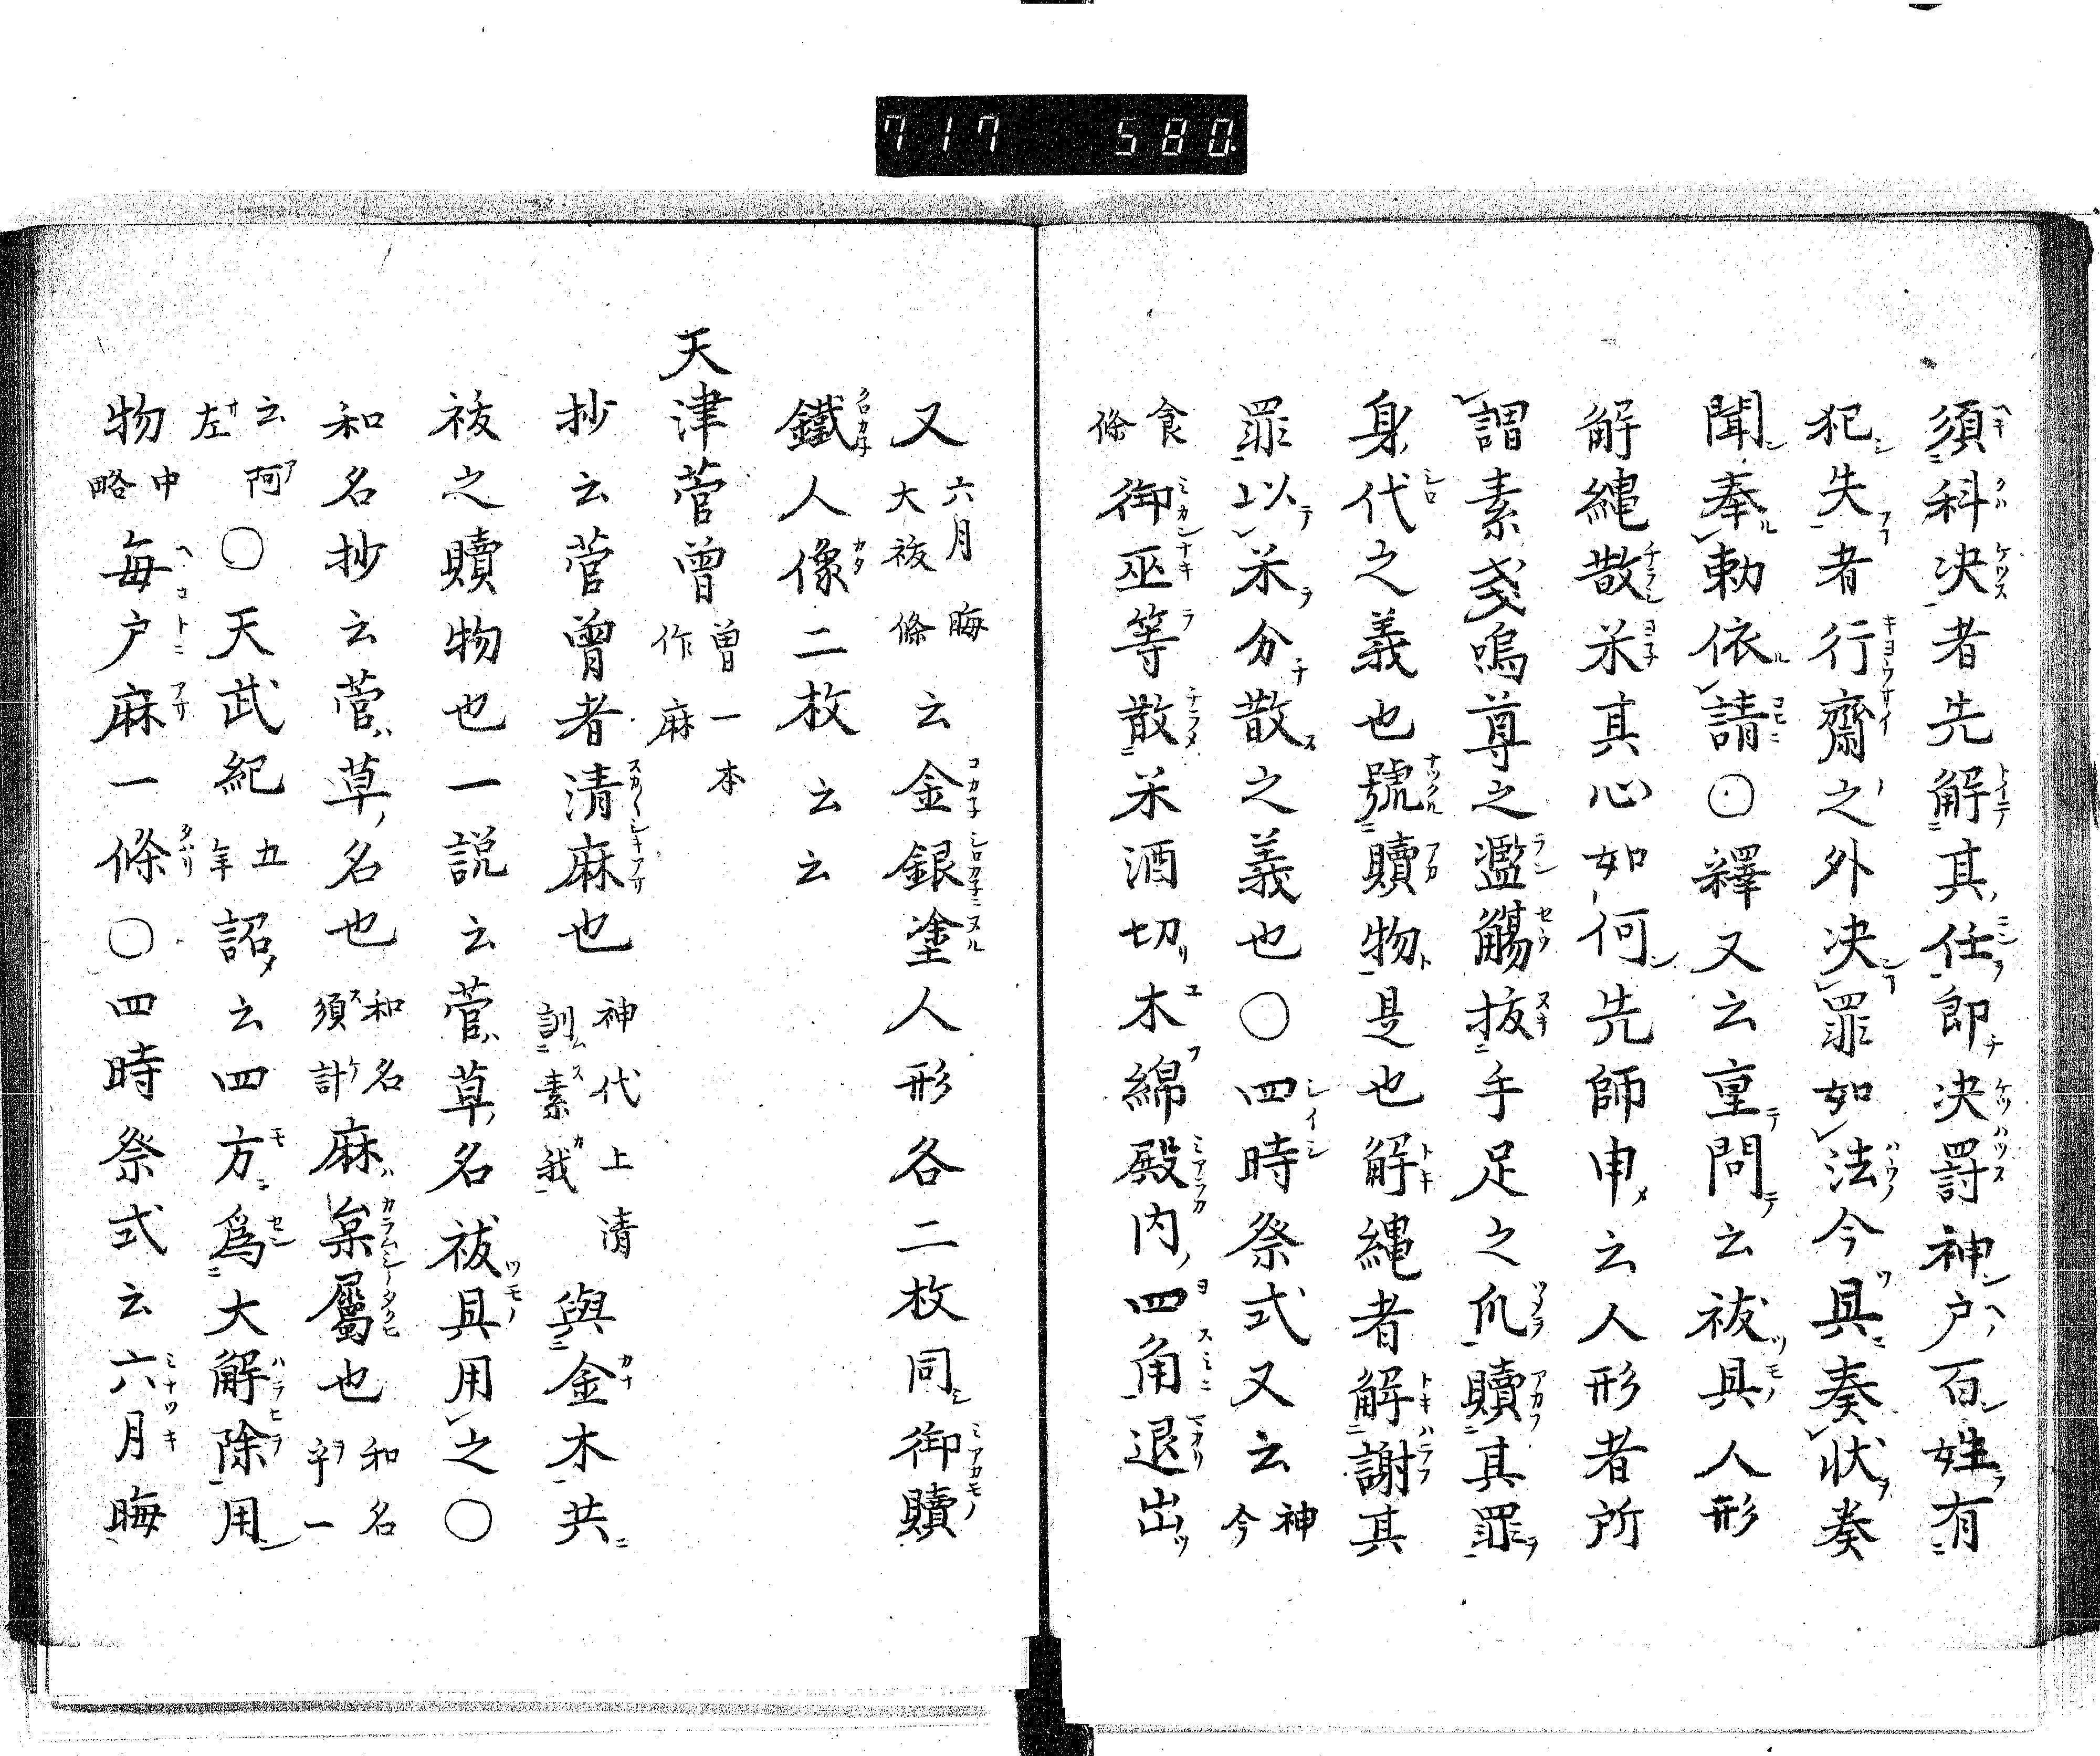 717 580.
須科决者先解其任即决罸神戸百姓有
犯失者行齋之外决罪如法今具奏状奏
聞奉勅依請〇釋又云重問云祓具人形
解繩散米其心如何先師申云人形者所
謂素戔嗚尊之濫觴抜手足之爪贖其罪
身代之義也號贖物是也解繩者解謝其
罪以米分散之義也〇四時祭式又云神今
食條御巫等散米酒切木綿殿内四角退出
又六月晦大祓條云金銀塗人形各二枚同御贖
鐵人像二枚云云
天津菅曾曽一本作麻
抄云菅曾者清麻也神代上清訓素我與金木共
祓之贖物也一説云菅草名祓具用之〇
和名抄云菅草名也和名須計麻枲屬也和名乎一
云阿左〇天武紀五年詔云四方為大解除用
物中略毎戸麻一條〇四時祭式云六月晦